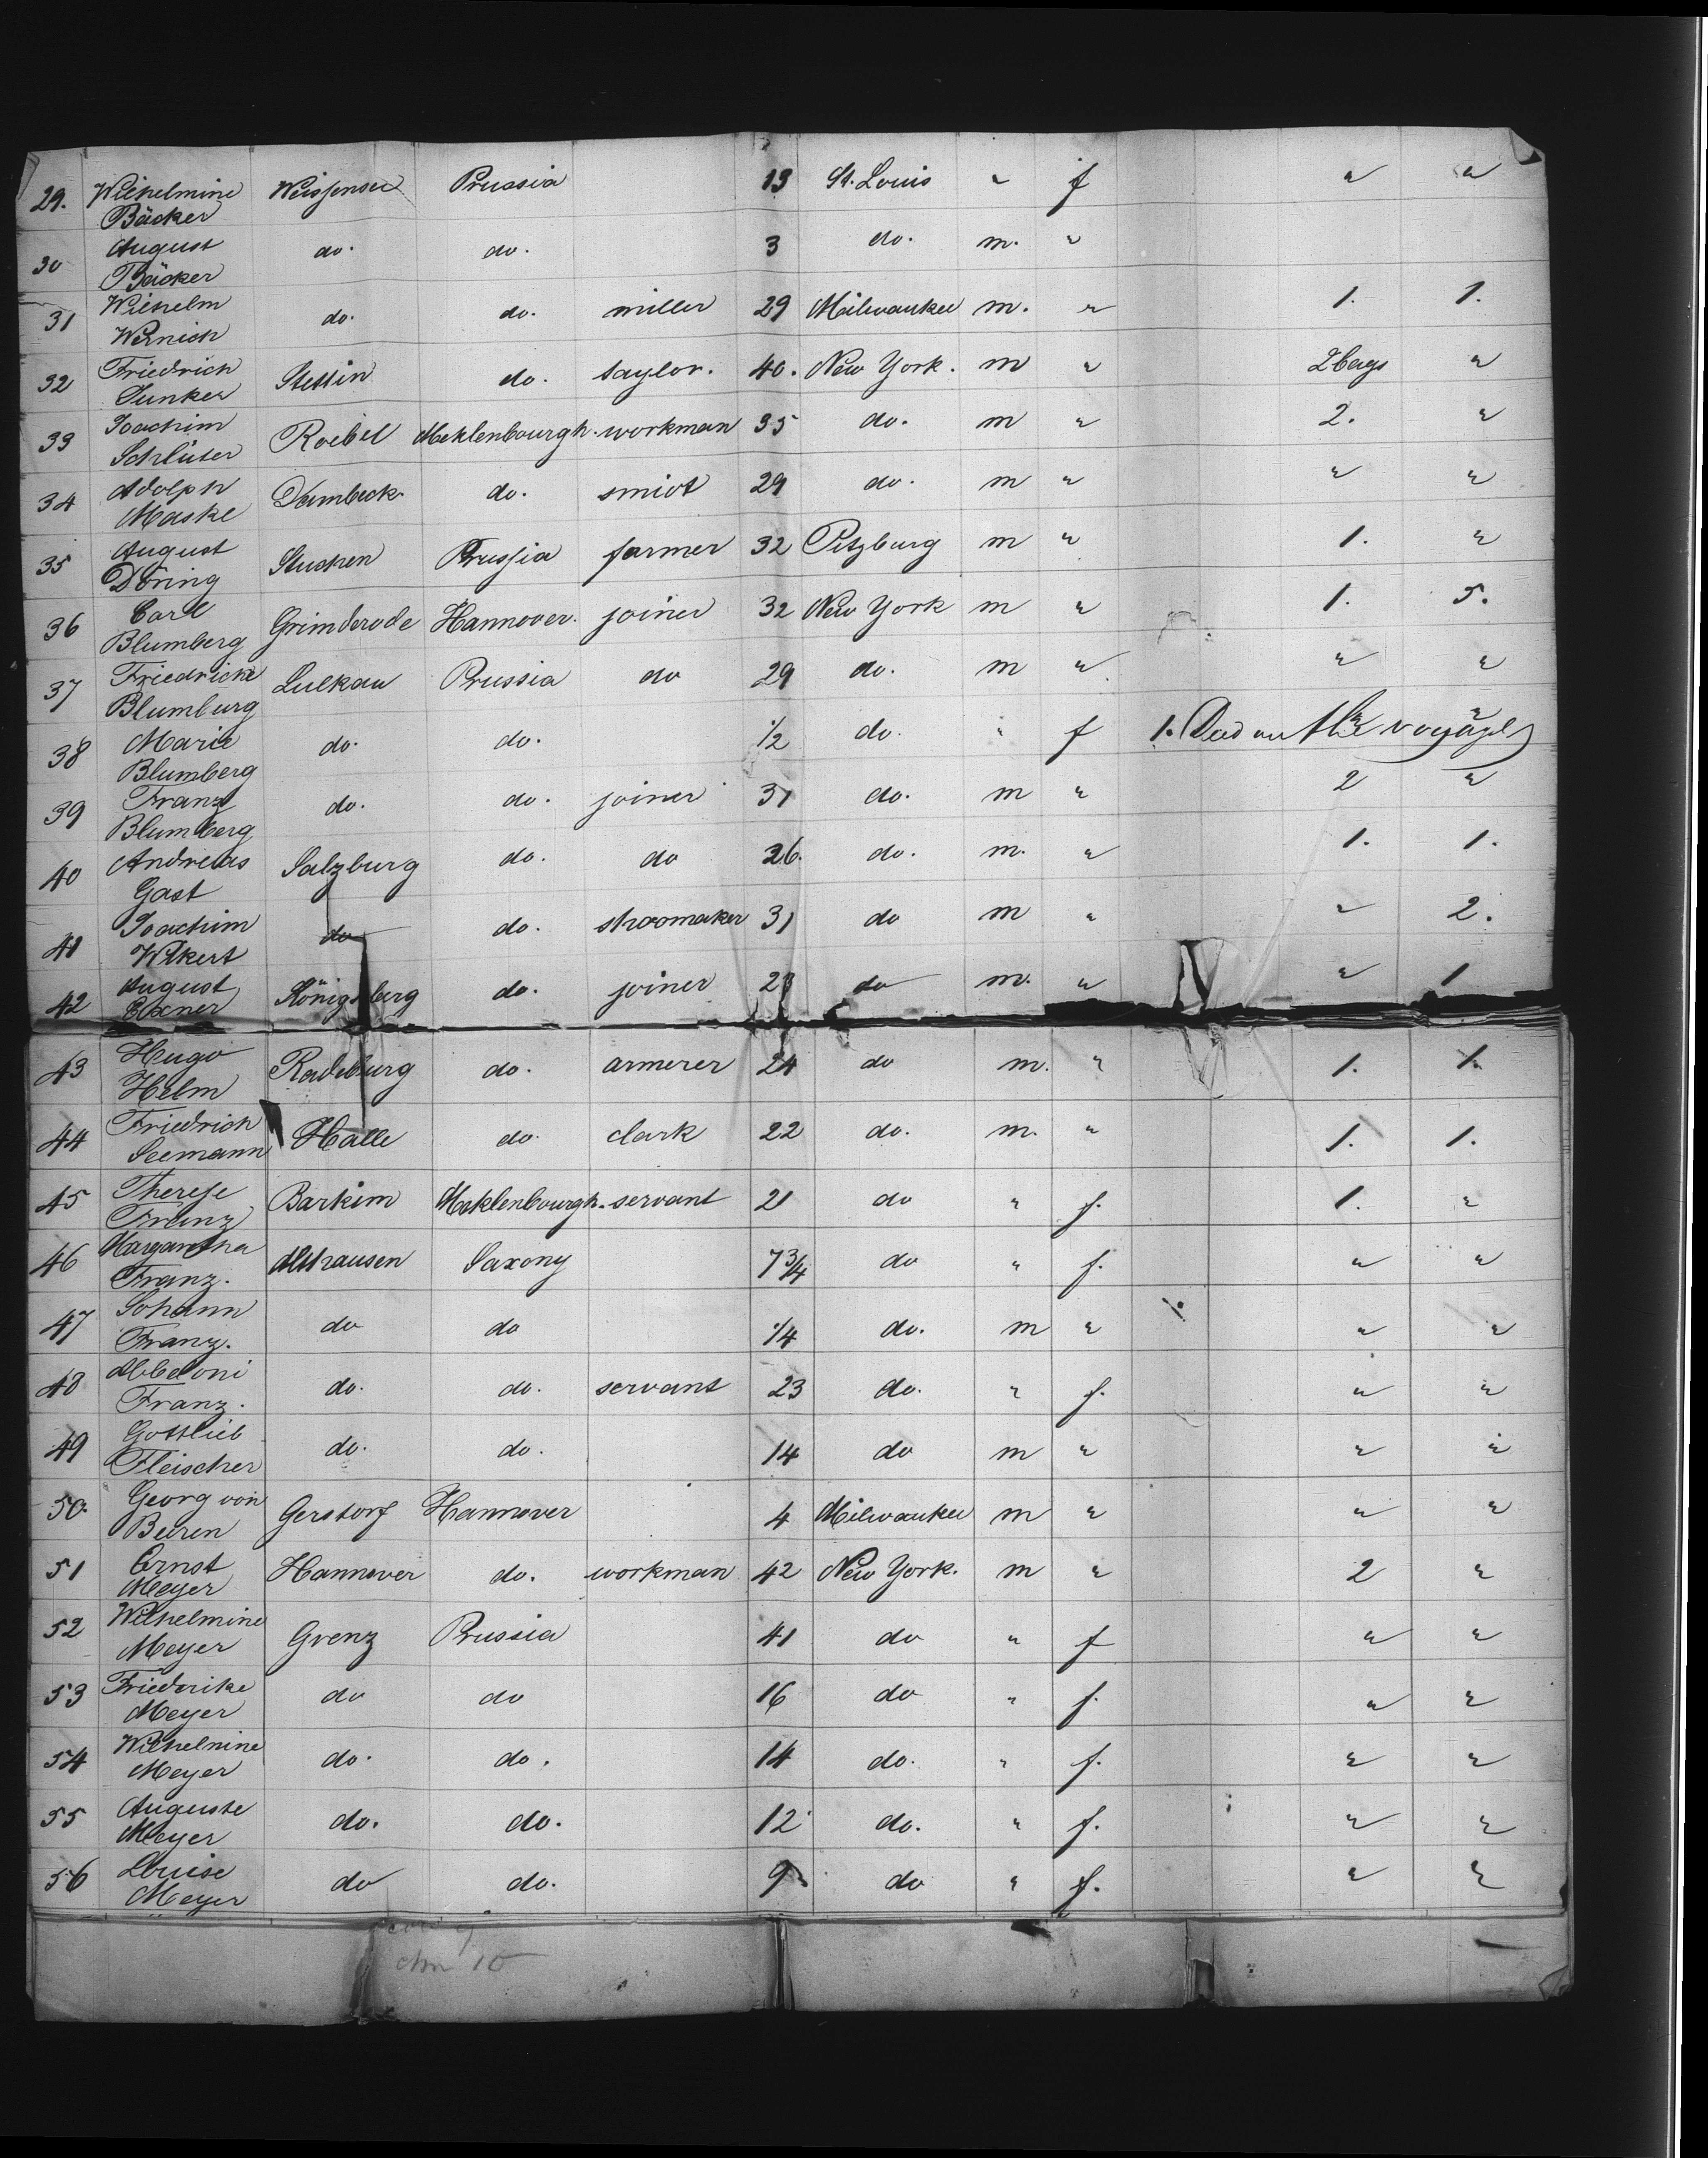 29. Wilhelmine Bäcker Weissensee Prussia 13 St. Louis " f " "
30 August Bäcker do. do. 3 do. m. "
31 Wilhelm Wernich do. do. miller 29 Milwaukee m. " 1. 1.
32 Friedrich Junker Stettin do. taylor. 40. New York. m " 2 bags "
33 Joachim Schlüter Roebel Meklenbourgh. workman 35 do. m " 2. "
34 Adolph Maske Dambeck do. smiot 29 do. m " " "
35 August Döring Stucken Prussia farmer 32 Pitzburg m " 1. "
36 Carl Blumberg Grimderode Hannover. joiner 32 New York m " 1. 5.
37 Friedricke Blumburg Luckau Prussia do 29 do. m " " "
38 Marie Blumberg do. do. 1/2 do. " f 1. Died on the voyage " "
39 Franz Blumberg do. do. joiner 31 do. m " 2 "
40 Andreas Gast Salzburg do. do 26. do. m. " 1. 1.
41 Joachim Wikert do do. shoomaker 31 do m " " 2.
42 August Exner Königsberg do. joiner 23 do m. " " 1
43 Hugo Helm Radeburg do. armerer 24 do m. " 1. 1.
44 Friedrich Seemann Halle do. clark 22 do. m. " 1. 1.
45 Therese Franz Barkim Meklenbourgh. servant 21 do " f. 1. "
46 Margaretha Franz. Althausen Saxony 7 3/4 do " f. " "
47 Johann Franz. do do 1/4 do. m " " "
48 Abbeloni Franz. do. do. servant 23 do. " f. " "
49 Gottlieb Fleischer do. do. 14 do m " " "
50. Georg von Beeren Gerstorf Hannover 4 Milwaukee m " " "
51 Ernst Meyer Hannover do. workman 42 New York. m " 2 "
52 Wilhelmine Meyer Grenz Prussia 41 do " f " "
53 Friederike Meyer do do 16 do " f. " "
54 Wilhelmine Meyer do. do. 14 do. " f. " "
55 Auguste Meyer do. do. 12 do. " f. " "
56 Louise Meyer do do. 9 do " f. " "
10